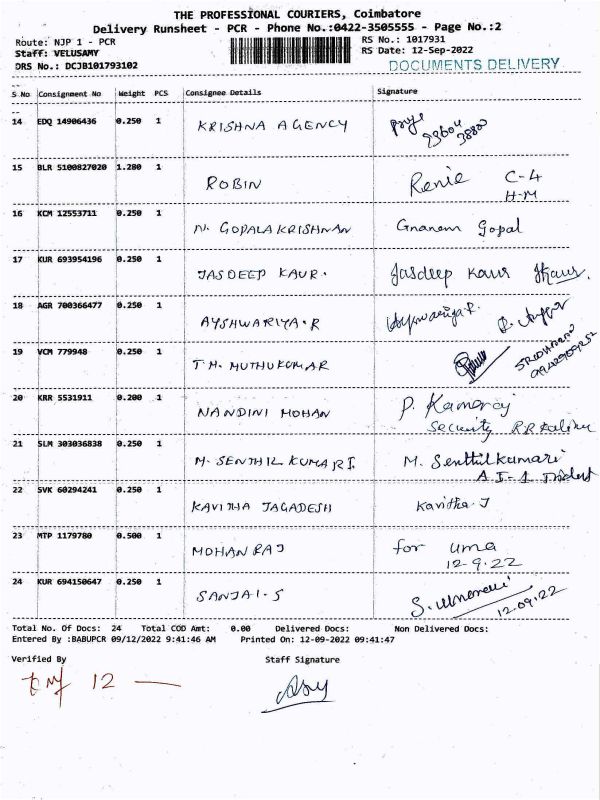 THE PROFESSIONAL COURIERS, Coimbatore
Delivery Runsheet - PCR - Phone No.:0422-3505555 - Page No.:2
Route: NJP 1 - PCR RS No.: 1017931
Staff: VELUSAMY RS Date: 12-Sep-2022
DRS No.: DCJB101793102 DOCUMENTS DELIVERY
S No Consignment No Weight PCS Consignee Details Signature
14 EDQ 14906436 0.250 1 KRISHNA AGENCY
15 BLR 5100827020 1.280 1 ROBIN Renie C-4
H-M
16 KCM 12553711 0.250 1 N. GOPALAKRISHNAN Gnanam Gopal
17 KUR 693954196 0.250 1 JASDEEP KAUR. Jasdeep Kaur
18 AGR 700366477 0.250 1 AYSHWARIYA.R
19 VCM 779948 0.250 1 T.M. MUTHUKUMAR SRIDHARAN
20 KRR 5531911 0.200 1 NANDINI MOHAN P. Kamaraj
Security
21 SLM 303036838 0.250 1 M. SENTHIL KUMARI. M. Senthilkumari
22 SVK 60294241 0.250 1 KAVITHA JAGADESH Kavitha.J
23 MTP 1179780 0.500 1 MOHANRAJ for uma
12-9.22
24 KUR 694150647 0.250 1 SANJAI.S
12.09.22
Total No. Of Docs: 24 Total COD Amt: 0.00 Delivered Docs: Non Delivered Docs:
Entered By :BABUPCR 09/12/2022 9:41:46 AM Printed On: 12-09-2022 09:41:47
Verified By Staff Signature
12 —